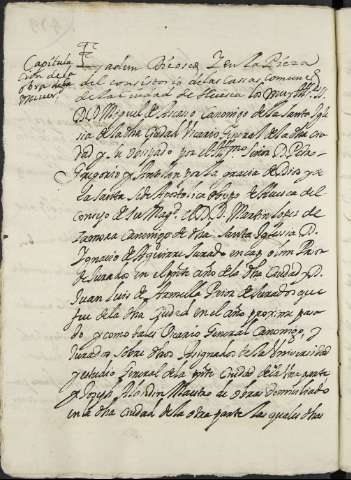 Capitula
cion de la
obra de la
Univer.d
Eadem die oscæ Y en la Pieza
del consistorio de las Cassas comunes
de la Ciudad de Huesca los muy Ill.es SS.
D.D. Miguel de Ascaso Canonigo de la Santa Igle
sia de la dha Ciudad Vicario General de la dha ciu
dad y su Obispado por el Ill.mo Señor D. Pedro
Gregorio y Antillon por la gracia de Dios y de
la Santa Sede Apostolica Obispo de Huesca del
Consejo de su Mag.d el D.D. Martin Lopes de
Zamora Canonigo de dha Santa Iglesia D.
Ignacio de Aguirre Jurado en cap o Im Prior
de Jurados en el pnte año de la dha Ciudad y D.
Juan Luis de Gamella Prior de Jurados que
fue de la dha Ciudad en el año proxime passa
do y como tales Vicario General Canonigo, y
Jurados Sobre dhos Asignados de la Universidad
y estudio General de la pnte Ciudad de la una parte
y Joseph Alandin Maestro de obras Domiciliado
en la dha ciudad de la otra parte las quales dhas